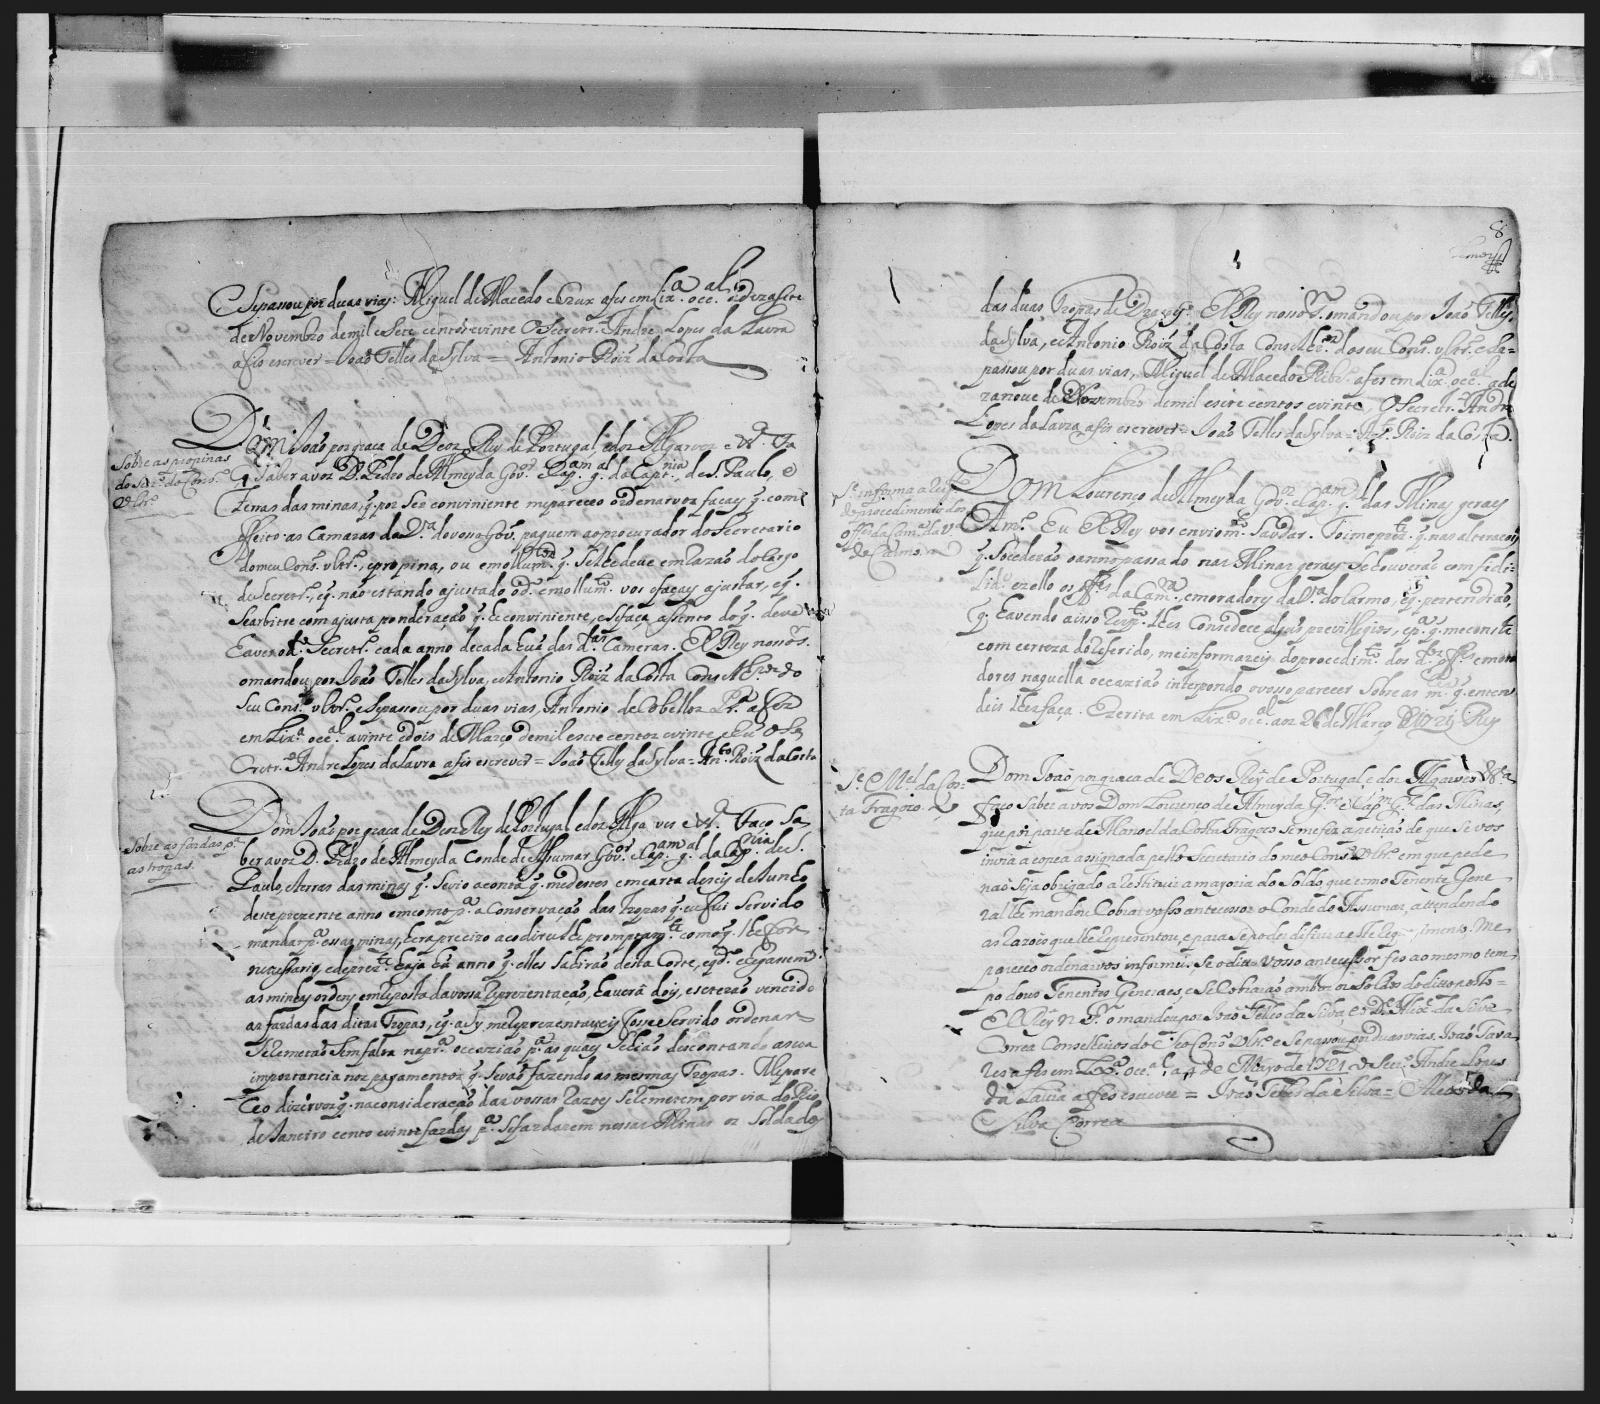 E se passou por duas vias: Miguel de Macedo e Cruz a fes em Lix.ª occ.al a dezasete
de Novembro de mil e sete centos e vinte O Secretr.º Andre Lopes da Lavra
a fis escrever = João Telles da Sylva = Antonio Roiz da Costa
Sobre as propinas
do Secr.º do Cons.º
Vltr.º
Dom João por graca de Deos Rey de Portugal, e dos Algarves &.ª Fa
ço saber a vos D. Pedro de Almeyda Gov.or e Cap.am g.al da Capt.nia de S. Paulo, e
terras das minas, q. por ser conviniente me pareceo ordenarvos façay q. com
effeito as Camaras da D.ª do voso Gov.º paguem ao procurador do Secretario
do meu Cons.º vltr.º, a propina, ou emollum.to q. se lhe deve em razão do cargo
de Secretr.º, e q. não estando ajustado o d.º emollum.to vos o façay ajustar, e q.
se arbitre com ajusta ponderação q. he conviniente, e se faça asento do q. deve
haver o d.º Secretr.º cada anno de cada huã das d.tas Cameras. El Rey nosso s.r
o mandou por João Telles da Sylva, e Antonio Roiz da Costa Cons.ros do
seu Cons.º vltr.º e se passou por duas vias, Antonio de Cobellos Pr.ª a fez
em Lix.ª occ.al a vinte e dois de Março de mil e sete centos e vinte, e Eu o Se
cretr.º Andre Lopes da Lavra a fis escrever = João Telles da Sylva = An.to Roiz da Costa
Sobre as fardas p.ª
as tropas.
Dom João por graca de Deos Rey de Portugal e dos Algarves &.ª Faço sa
ber a vos D. Pedro de Almeyda Conde de Assumar Gov.or e Cap.am g.al da Cap.nia de S.
Paulo, e terras das minas q. se vio a conta q. me destes em carta de seis de Junho
deste prezente anno em como p.ª a conservacão das tropas q. eu fui servido
mandar p.ª essas minas, hera precizo acodirselhe promptam.te com o q. lhe for
necessario, e de prez.te haja hũ anno q. elles sahirão desta Corte, e q.do chegassem
as minhas ordens em reposta da vossa reprezentacão, haverá dois, e se terão vencido
as fardas das ditas Tropas, e q. asy me reprezentaveis fosse servido ordenar
se remetão sem falta na pr.ª occazião p.ª as quaes se hião descontando a sua
importancia nos pagamentos q. se vão fazendo as mesmas Tropas. Me pare
ceo dizervos q. na consideração das vossas razoes se remetem por via do Rio
de Janeiro cento e vinte fardas p.ª se fardarem nessas Minas os Soldados
8
das duas Tropas de Drag.s El Rey nosso S.r o mandou por João Telles
da Sylva, e Antonio Roiz da Costa Conselh.ros do seu Cons.º vltr.º e se
passou por duas vias, Miguel de Macedo Ribr.º a fes em Lix.ª occ.al a de
zanove de Novembro de mil e sete centos e vinte, O Secretr.º Andre
Lopes da Lavra a fis escrever = João Telles da Sylva = An.to Roiz da Costa.
S.e informar a resp.to
do procedimento dos
off.es da Cam.ª da V.ª
do Carmo.
Dom Lourenço de Almeyda Gov.or e Cap.am g.al das Minas geraes
Am.º Eu El Rey vos envio m.to saudar. Foime prez.te q. nas alteracoes
q. sucederão o anno passado nas Minas geraes se houverão com fideli
lid.e e zello os off.es da Cam.ra, e moradores da V.ª do Carmo, e q. pertendião,
q. havendo a isso resp.to lhes concedece alguns previllegios, e p.ª q. me conste
com certeza do referido, me informareis do procedim.to dos d.tos off.es e mora
dores naquella occazião interpondo o vosso parecer sobre as m.ces q. enten
deis lhes faça. Escrita em Lix.ª occ.al aos 26 de Março de 1721 Rey
S.e M.el da Cos-
ta Fragozo.
Dom João por graca de Deos Rey de Portugal, e dos Algarves &.ª
faço saber a vos Dom Lourenco de Almeyda G.or e Cap.am G.al das Minas,
que por parte de Manoel da Costa Fragozo se me fez a petição de que se vos
invia a copea assignada pello Secretario do meo Cons.º Vltr.º em que pede
não seja obrigado a restituir a mayoria do soldo que como Tenente Gene
ral lhe mandou cobrar vosso antecessor o Conde do Assumar, attendendo
as razois que lhe representou, e para se poder defirir a este requerimento. Me
pareceo ordenarvos informeis se o dito vosso antecessor fes ao mesmo tem
po dous Tenentes Generaes, e se cobrarão ambos os soldos do ditto posto =
El Rey N. S.r o mandou por João Telles da Silva e o D.or Alex.e da Silva
Correa Conselheiros do seo Cons.º Vltr.º e se passou por duas vias. João Tava
res a fes em Lx.ª occ.al a 4 de Mayo de 1721 o Secr.º Andre Lopes
da Lavra a fes escrever = João Telles da Silva = Alexe da
Silva Correa